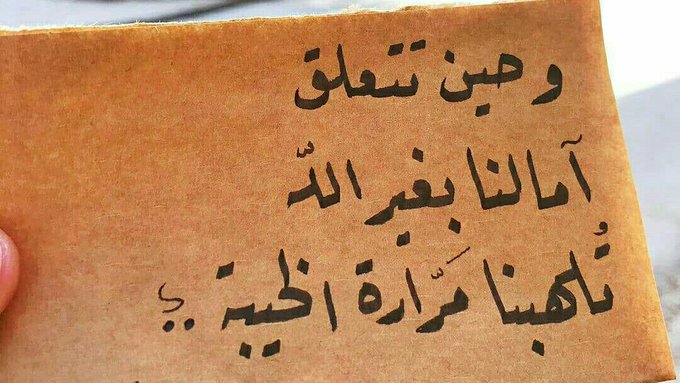 وحين تتعلق
آمالنا بغير اللّه
تُلهبنا مَرّارة الخيبة ..